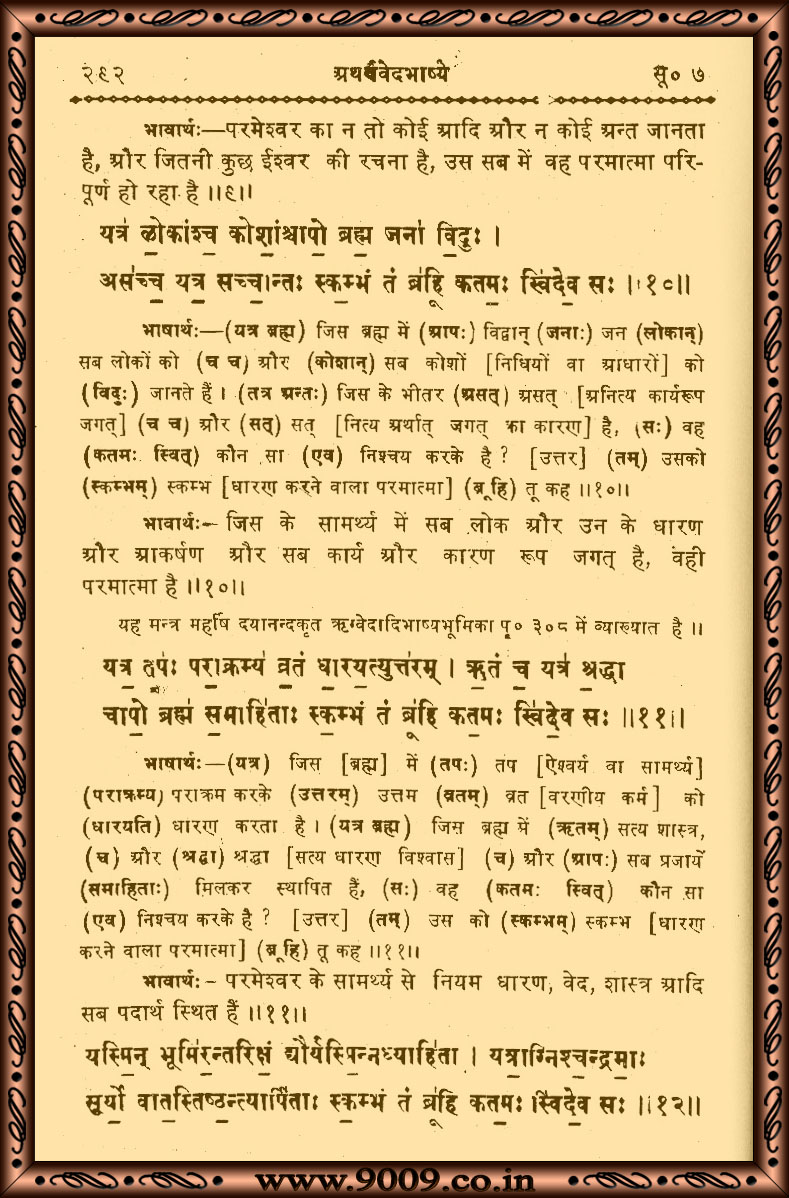 २९२ अथर्ववेदभाष्ये सू० ७
भावार्थः—परमेश्वर का न तो कोई आदि और न कोई अन्त जानता
है, और जितनी कुछ ईश्वर की रचना है, उस सब में वह परमात्मा परि-
पूर्ण हो रहा है ॥९॥
यत्र॑ लो॒कांश्च॒ कोशां॒श्चापो॒ ब्रह्म॒ जना॑ वि॒दुः ।
अस॑च्च॒ यत्र॒ सच्चा॒न्तः स्क॒म्भं तं ब्रू॑हि कत॒मः स्वि॑दे॒व सः ॥१०॥
भाषार्थः—(यत्र ब्रह्म) जिस ब्रह्म में (आपः) विद्वान् (जनाः) जन (लोकान्)
सब लोकों को (च च) और (कोशान्) सब कोशों [निधियों वा आधारों] को
(विदुः) जानते हैं । (तत्र अन्तः) जिस के भीतर (असत्) असत् [अनित्य कार्यरूप
जगत्] (च च) और (सत्) सत् [नित्य अर्थात् जगत् का कारण] है, (सः) वह
(कतमः स्वित्) कौन सा (एव) निश्चय करके है ? [उत्तर] (तम्) उसको
(स्कम्भम्) स्कम्भ [धारण करने वाला परमात्मा] (ब्रूहि) तू कह ॥१०॥
भावार्थः— जिस के सामर्थ्य में सब लोक और उन के धारण
और आकर्षण और सब कार्य और कारण रूप जगत् है, वही
परमात्मा है ॥१०॥
यह मन्त्र महर्षि दयानन्दकृत ऋग्वेदादिभाष्यभूमिका पृ० ३०८ में व्याख्यात है ॥
यत्र॒ तपः॑ परा॒क्रम्य॑ व्र॒तं धा॒रय॒त्युत्त॑रम् । ऋ॒तं च॒ यत्र॑ श्र॒द्धा
चापो॒ ब्रह्म॑ स॒माहि॑ताः स्क॒म्भं तं ब्रू॑हि कत॒मः स्वि॑दे॒व सः ॥११॥
भाषार्थः—(यत्र) जिस [ब्रह्म] में (तपः) तप [ऐश्वर्य वा सामर्थ्य]
(पराक्रम्य) पराक्रम करके (उत्तरम्) उत्तम (व्रतम्) व्रत [वरणीय कर्म] को
(धारयति) धारण करता है । (यत्र ब्रह्म) जिस ब्रह्म में (ऋतम्) सत्य शास्त्र,
(च) और (श्रद्धा) श्रद्धा [सत्य धारण विश्वास] (च) और (आपः) सब प्रजायें
(समाहिताः) मिलकर स्थापित हैं, (सः) वह (कतमः स्वित्) कौन सा
(एव) निश्चय करके है ? [उत्तर] (तम्) उस को (स्कम्भम्) स्कम्भ [धारण
करने वाला परमात्मा] (ब्रूहि) तू कह ॥११॥
भावार्थः - परमेश्वर के सामर्थ्य से नियम धारण, वेद, शास्त्र आदि
सब पदार्थ स्थित हैं ॥११॥
यस्मि॒न् भूमि॑र॒न्तरि॑क्षं॒ द्यौर्यस्मि॒न्नध्याहि॑ता । यत्रा॒ग्निश्च॒न्द्रमाः॒
सूर्यो॒ वात॒स्तिष्ठ॒न्त्यार्पि॑ताः स्क॒म्भं तं ब्रू॑हि कत॒मः स्वि॑दे॒व सः ॥१२॥
www.9009.co.in